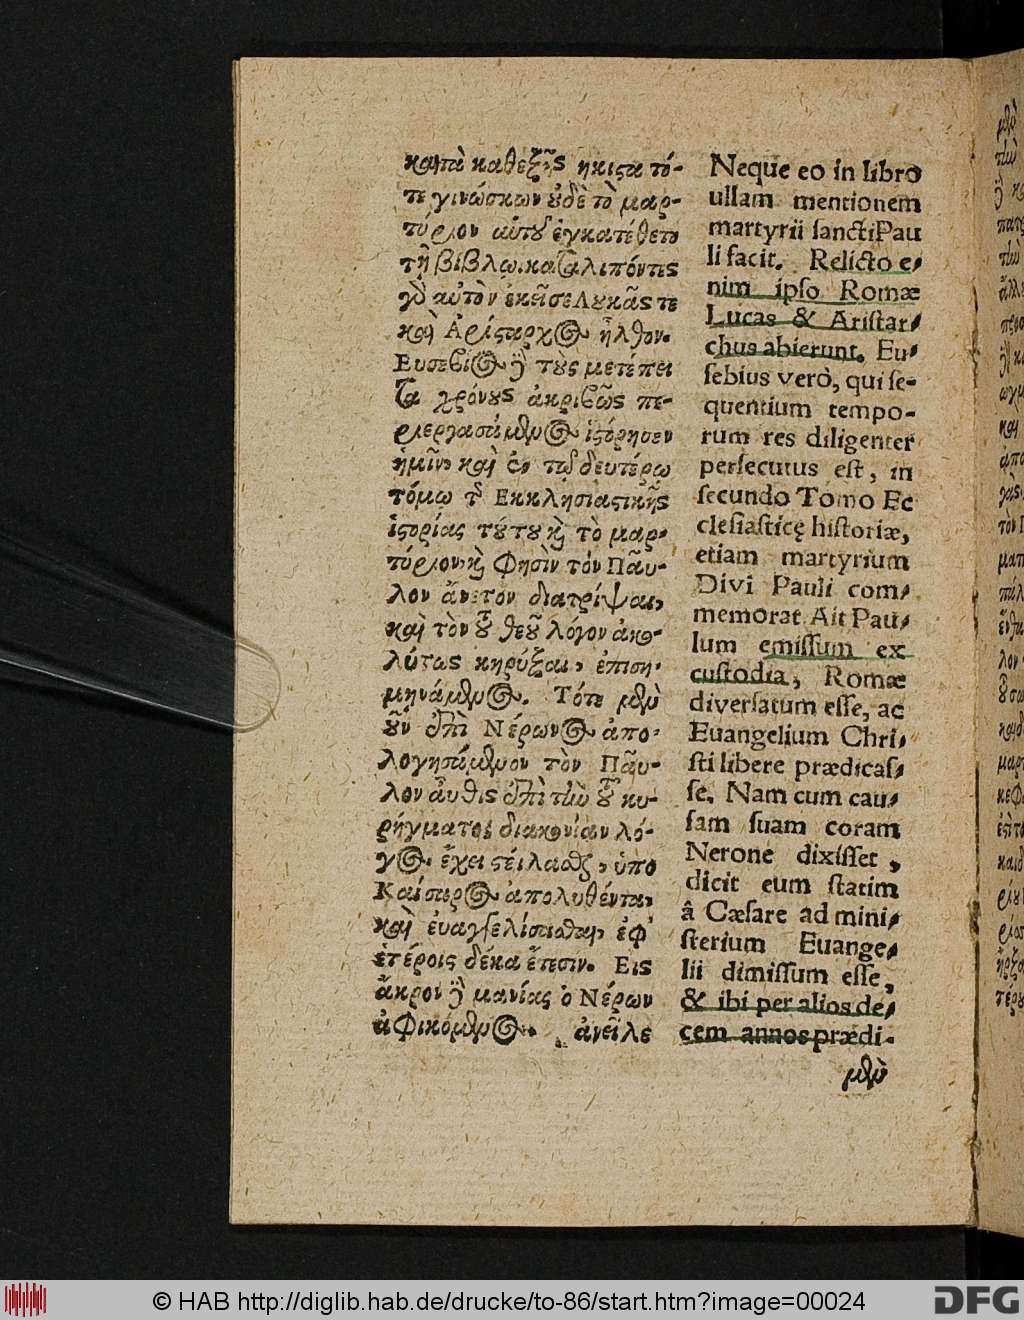 κατὰ καθεξῆς ἥκιστα τό-
τε γινώσκων ὐδὲ τὸ μαρ-
τύριον αὐτοῦ ἐγκατέθετο
τῇ βίβλω. καταλιπόντες
γὸ αὐτὸν ἐκεῖσε Λουκᾶς τε
καὶ Ἀρίσταρχος ἦλθον.
Ευσεβιος ὃ τοὺς μετέπει
τα χρόνους ἀκριβῶς πε-
ριεργασάμενος ἱστόρησεν
ἡμῖν, καὶ ἐν τῷ δευτέρω
τόμω τῆς Εκκλησιαστικῆς
ἱστορίας τούτου καὶ τὸ μαρ-
τύριον, καὶ φησὶν τὸν Παῦ-
λον ἄνετόν διατρίψαι,
καὶ τὸν τοῦ θεοῦ λόγον ἀκω-
λύτως κηρύξαι, ἐπιση-
μηνάμενος. Τότε μὲν
οὖν ἐπὶ Νέρωνος ἀπο-
λογησάμενον τὸν Παῦ-
λον αὖθις ἐπὶ τὴν τοῦ κη-
ρύγματος διακονίαν λό-
γος ἔχει στείλασθαι, ὑπο
Καίσαρος ἀπολυθέντα,
καὶ ἐυαγγελίσασθαι, ἐφ'
ἑτέροις δέκα ἔτεσιν. Εις
ἄκρον ὃ μανίας ὁ Νέρων
ἀφικόμενος. ἀνεῖλε
Neque eo in libro
ullam mentionem
martyrii sancti Pau
li facit. Relicto e-
nim ipso Romæ
Lucas & Aristar-
chus abierunt. Eu-
sebius verò, qui se-
quentium tempo-
rum res diligenter
persecutus est, in
secundo Tomo Ec
clesiasticę historiæ,
etiam martyrium
Divi Pauli com-
memorat Ait Pau-
lum emissum ex
custodia, Romæ
diversatum esse, ac
Euangelium Chri-
sti libere prædicas-
se. Nam cum cau-
sam suam coram
Nerone dixisset,
dicit eum statim
â Cæsare ad mini-
sterium Euange-
lii dimissum esse,
& ibi per alios de-
cem annos prædi-
μὲν
© HAB http://diglib.hab.de/drucke/to-86/start.htm?image=00024
DFG